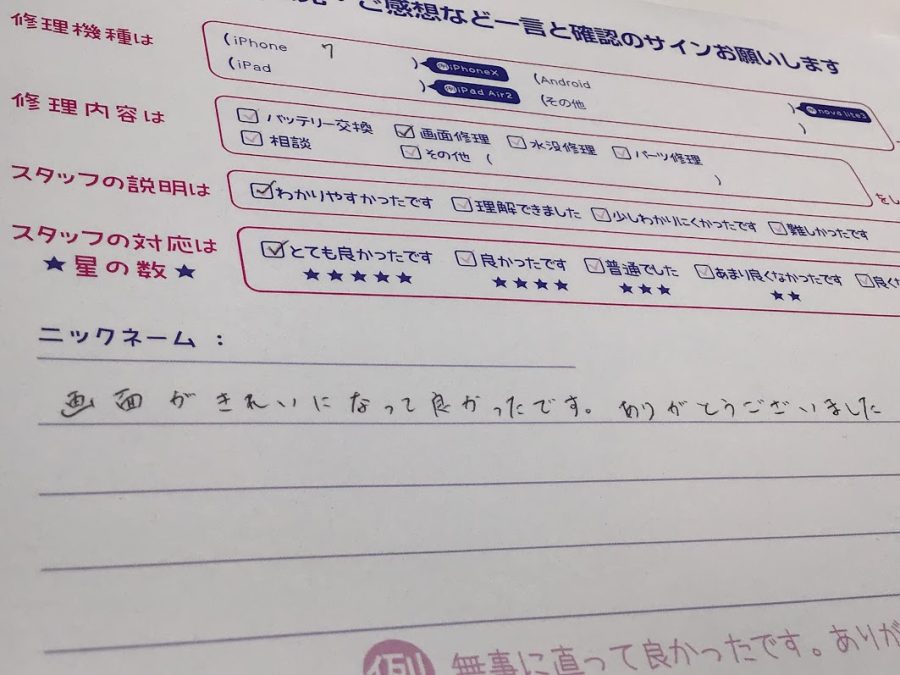 ご感想など一言と確認のサインお願いします
修理機種は
(iPhone 7 ) 例iPhoneX (Android ) 例nova lite3
(iPad ) 例iPad Air2 (その他 )
修理内容は
バッテリー交換 画面修理 水没修理 パーツ修理
相談 その他 ( )
をし
スタッフの説明は
わかりやすかったです 理解できました 少しわかりにくかったです 難しかったです
スタッフの対応は
★星の数★
とても良かったです 良かったです 普通でした あまり良くなかったです 良く
★★★★★ ★★★★ ★★★ ★★
ニックネーム：
画面がきれいになって良かったです。ありがとうございました
例 無事に直って良かったです。ありが